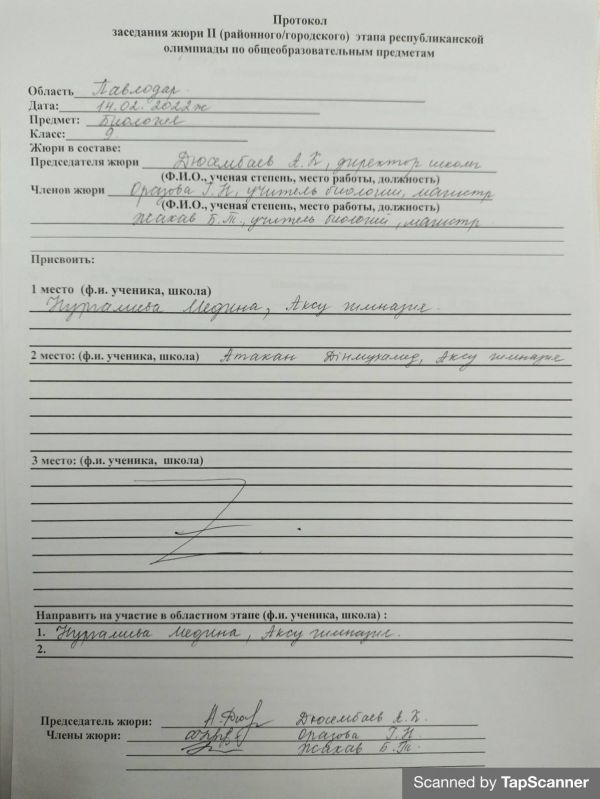 Протокол
заседания жюри II (районного/городского) этапа республиканской
олимпиады по общеобразовательным предметам
Область Павлодар
Дата: 14.02.2022ж
Предмет: Биология
Класс: 9
Жюри в составе:
Председателя жюри Дюсембаев А.К, директор школы
(Ф.И.О., ученая степень, место работы, должность)
Членов жюри Оразова Г.Н, учитель биологии, магистр
(Ф.И.О., ученая степень, место работы, должность)
Жахав Б.Т., учитель биологий, магистр
Присвоить:
1 место (ф.и. ученика, школа)
Нургалиева Медина, Аксу гимназия.
2 место: (ф.и. ученика, школа) Атакан Дінмухамед, Аксу гимназия
3 место: (ф.и. ученика, школа)
Направить на участие в областном этапе (ф.и. ученика, школа) :
1. Нургалиева Медина, Аксу гимназия.
2.
Председатель жюри: Дюсембаев А.К.
Члены жюри: Оразова Г.Н
Жахав Б.Т.
Scanned by TapScanner